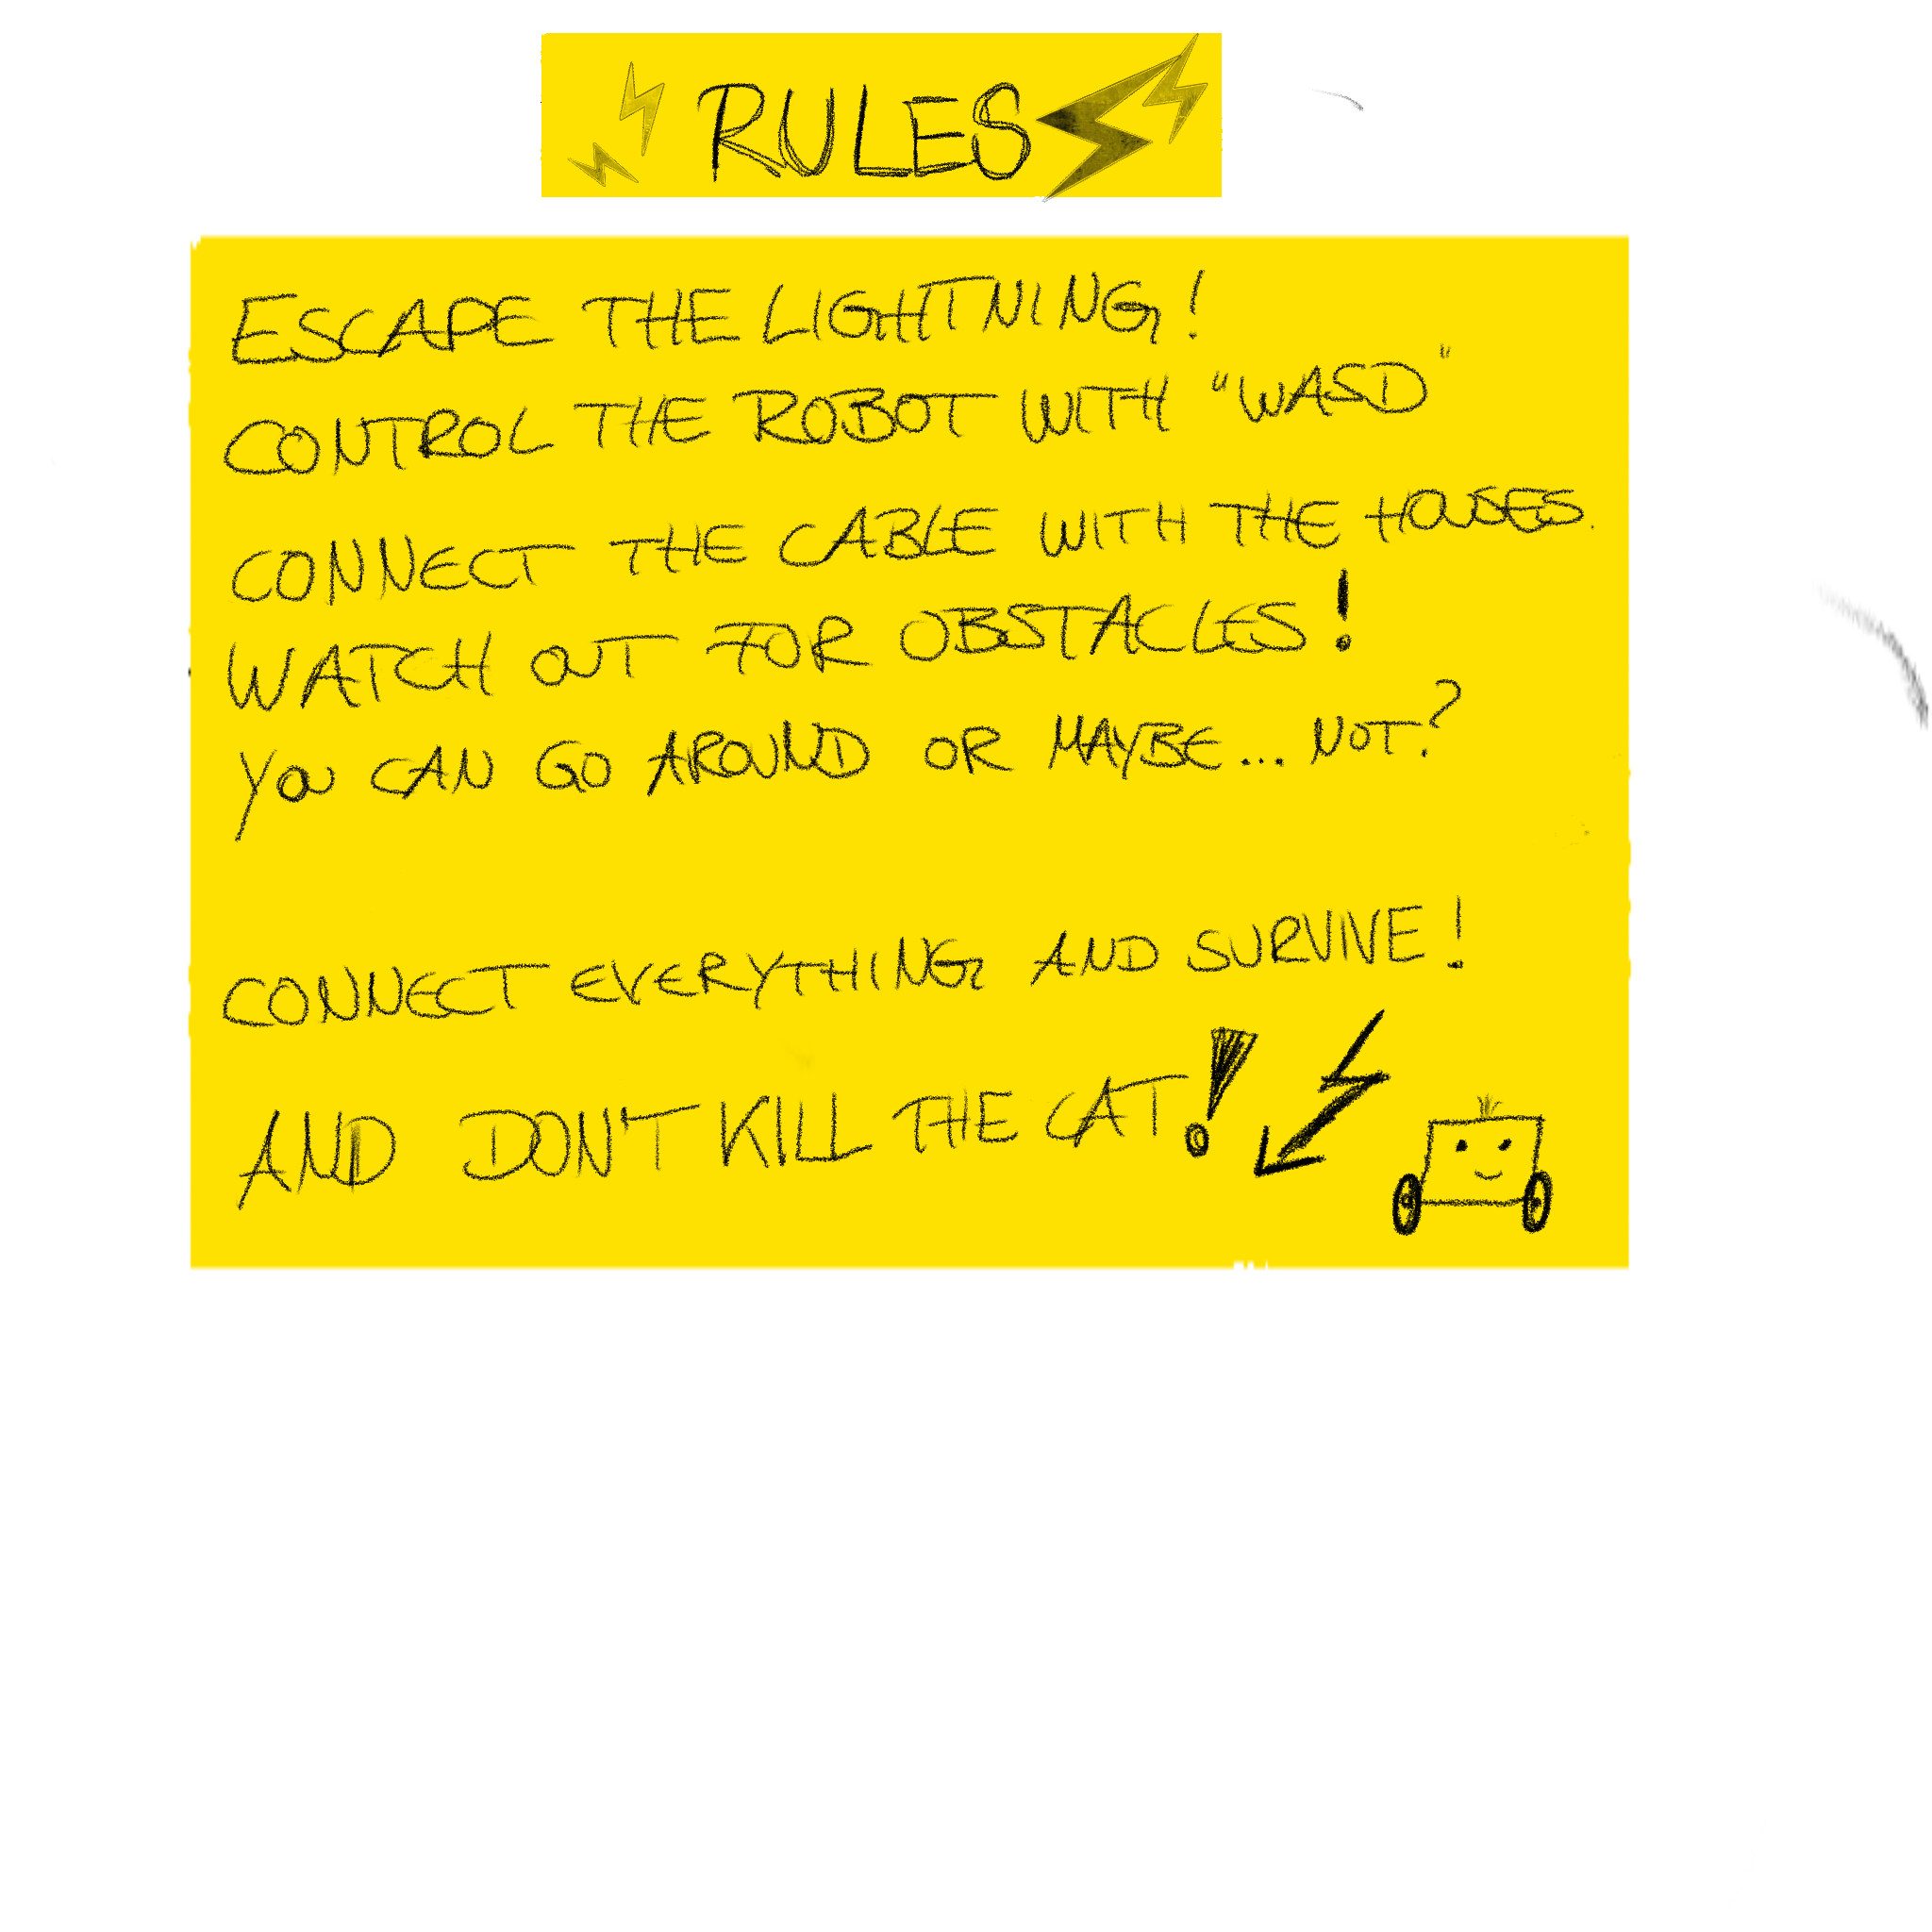 RULES
ESCAPE THE LIGHTNING!
CONTROL THE ROBOT WITH "WASD"
CONNECT THE CABLE WITH THE HOUSES.
WATCH OUT FOR OBSTACLES!
YOU CAN GO AROUND OR MAYBE... NOT?
CONNECT EVERYTHING AND SURVIVE!
AND DON'T KILL THE CAT!